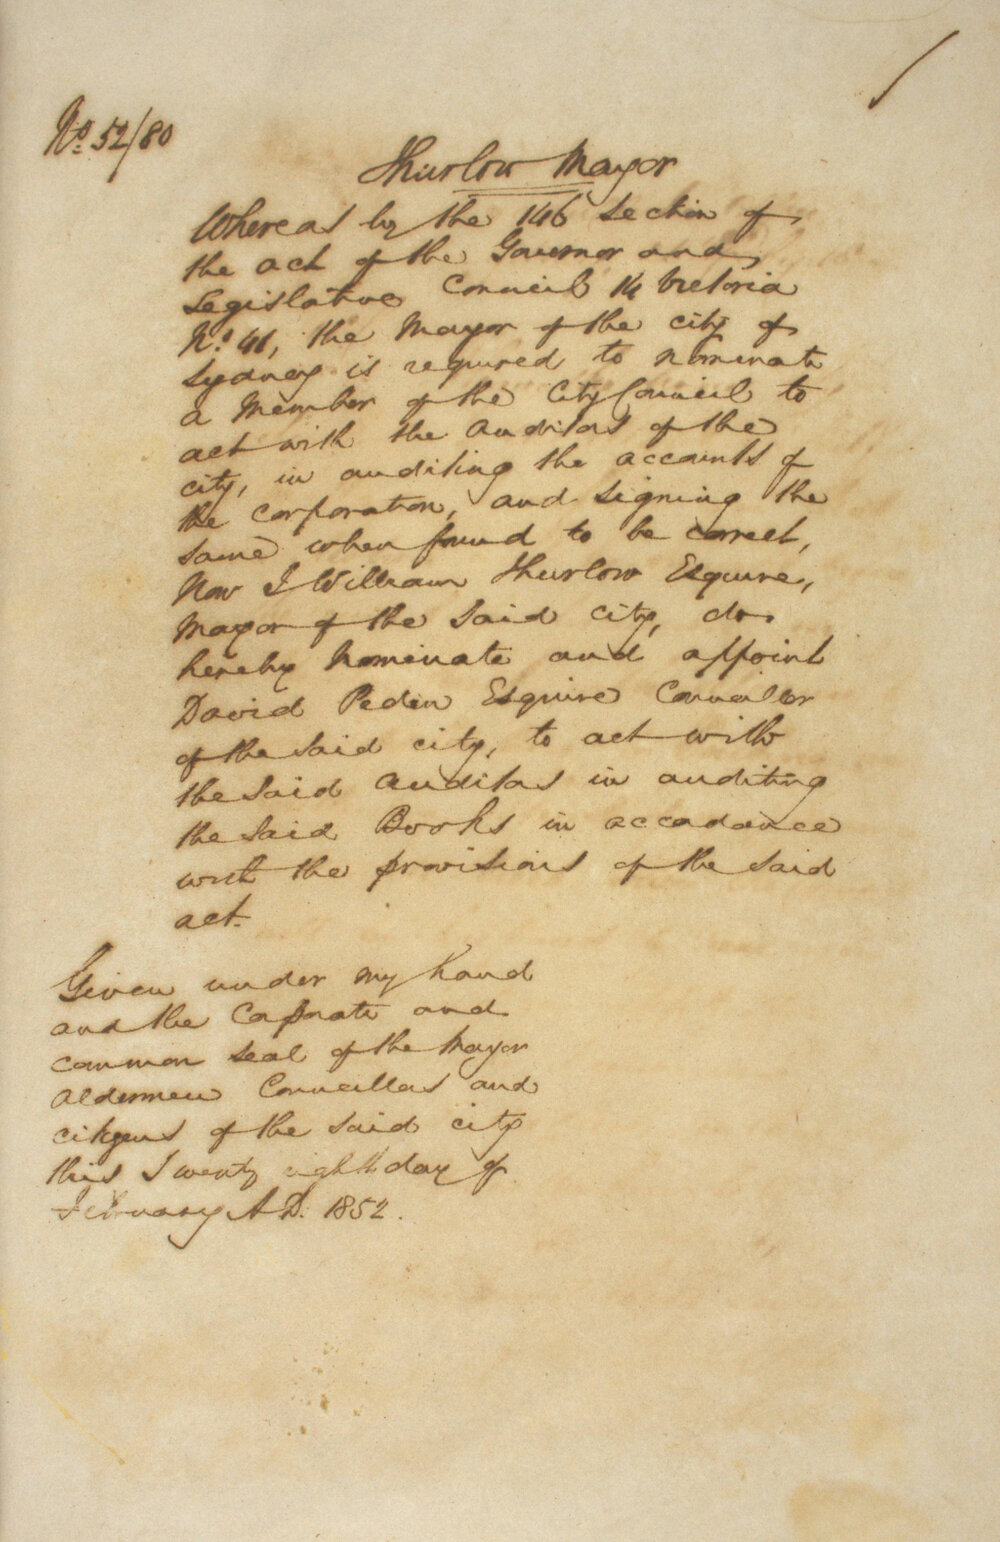 No. 52/80
Thurlow Mayor
Whereas by the 146 Section of
the act of the Governor and
Legislative Council 14 Victoria
No. 41, the Mayor of the city of
Sydney is required to nominate
a Member of the City Council to
act with the Auditors of the
city, in auditing the accounts of
the corporation, and signing the
same when found to be correct,
Now I William Thurlow Esquire,
Mayor of the said city, do
hereby Nominate and appoint
David Peden Esquire Councillor
of the said city, to act with
the said Auditors in auditing
the said Books in accordance
with the provisions of the said
act.
Given under my hand
and the Corporate and
common seal of the Mayor
Aldermen Councillors and
citizens of the said city
this Twenty eighth day of
February A.D. 1852.